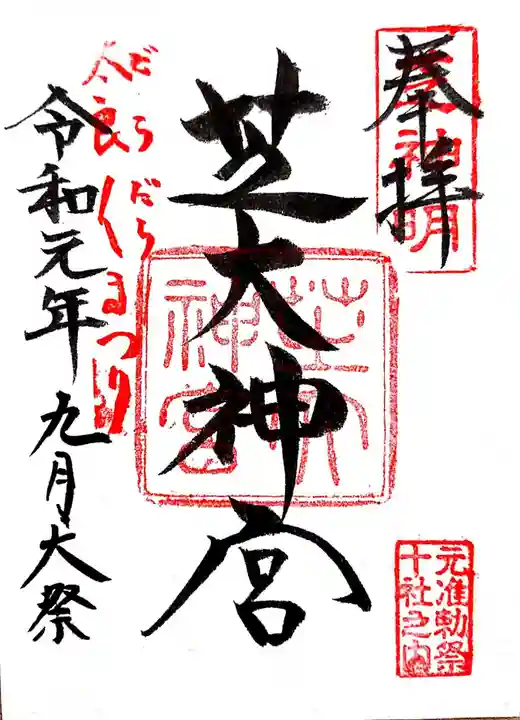 奉拝
芝神明
芝大神宮
芝大神宮
元准勅祭
十社之内
だらだらまつり
令和元年九月大祭